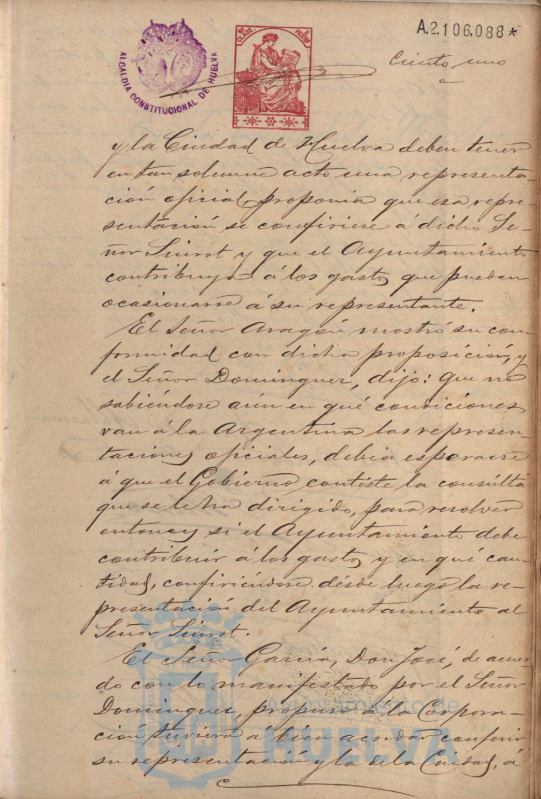 A.2.106.088*
ALCALDIA CONSTITUCIONAL DE HUELVA
Ciento uno
y la Ciudad de Huelva deben tener
en tan solemne acto una representa-
ción oficial, proponia que esa repre-
sentación se confiriese á dicho Se-
ñor Siurot y que el Ayuntamiento
contribuya á los gastos que puedan
ocasionarse á su representante.
El Señor Aragón mostró su con-
formidad con dicha proposición, y
el Señor Dominguez, dijo: Que no
sabiéndose aún en qué condiciones
van á la Argentina las represen-
taciones oficiales, debia esperarse
á que el Gobierno conteste la consulta
que se le ha dirigido, para resolver
entonces si el Ayuntamiento debe
contribuir á los gastos y en qué can-
tidad, confiriendose desde luego la re-
presentación del Ayuntamiento al
Señor Siurot.
El Señor García, Don José, de acuer-
do con lo manifestado por el Señor
Dominguez, propuso á la Corpora-
ción tuviera á bien acordar conferir
su representación y la de la Ciudad, á
Ayuntamiento de
HUELVA